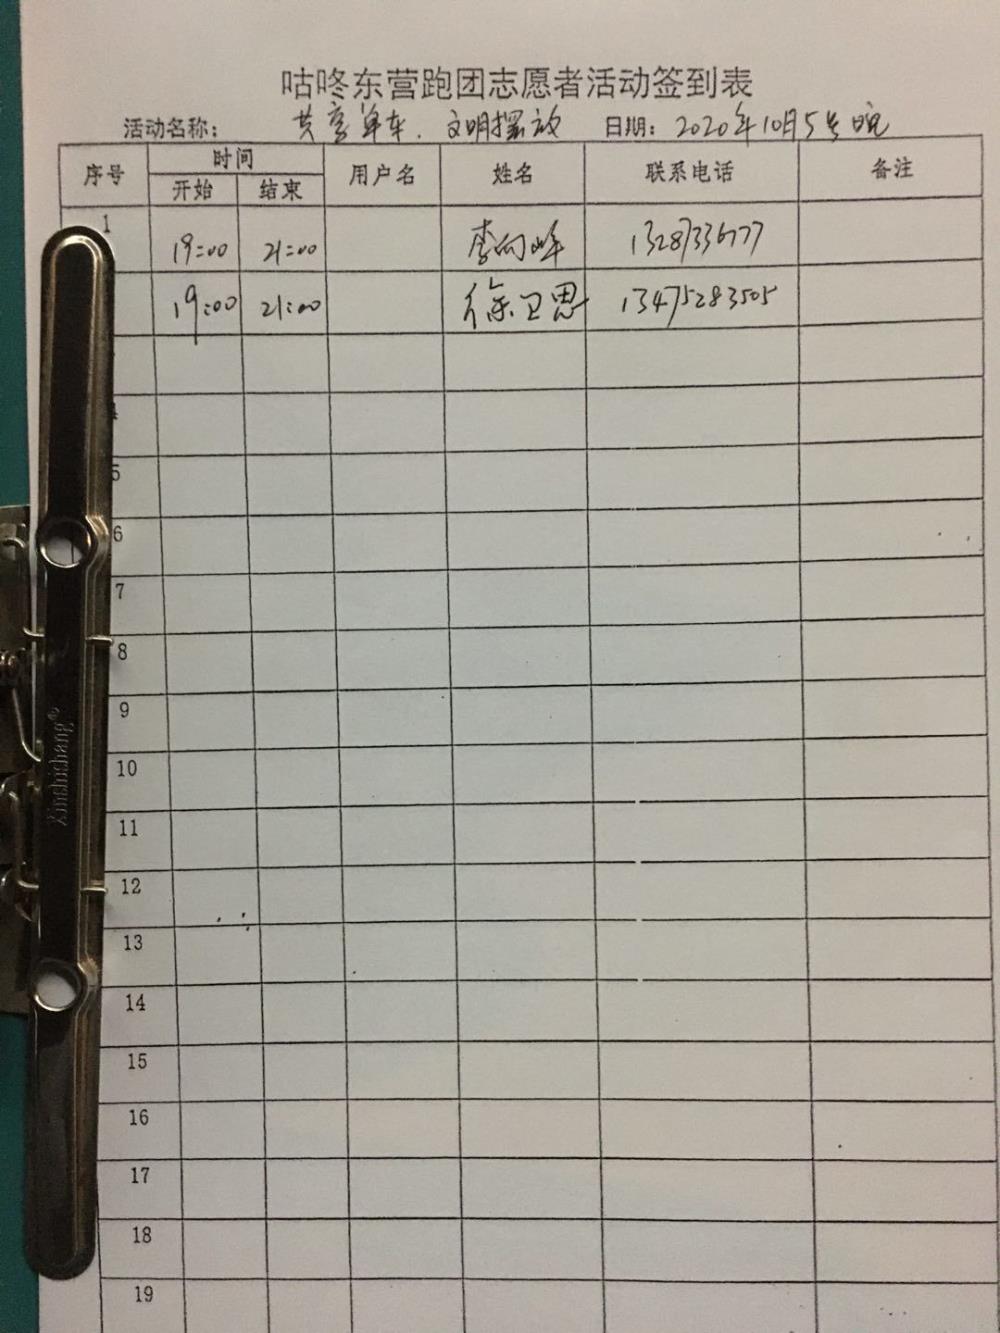 咕咚东营跑团志愿者活动签到表
活动名称： 共享单车．文明摆放 日期：2020年10月5号晚
序号 时间 用户名 姓名 联系电话 备注
开始 结束
1 19:00 21:00 李向峰 13287336777
19:00 21:00 徐卫恩 13475283505
4
5
6
7
8
9
10
11
12
13
14
15
16
17
18
19
Xinshishang®